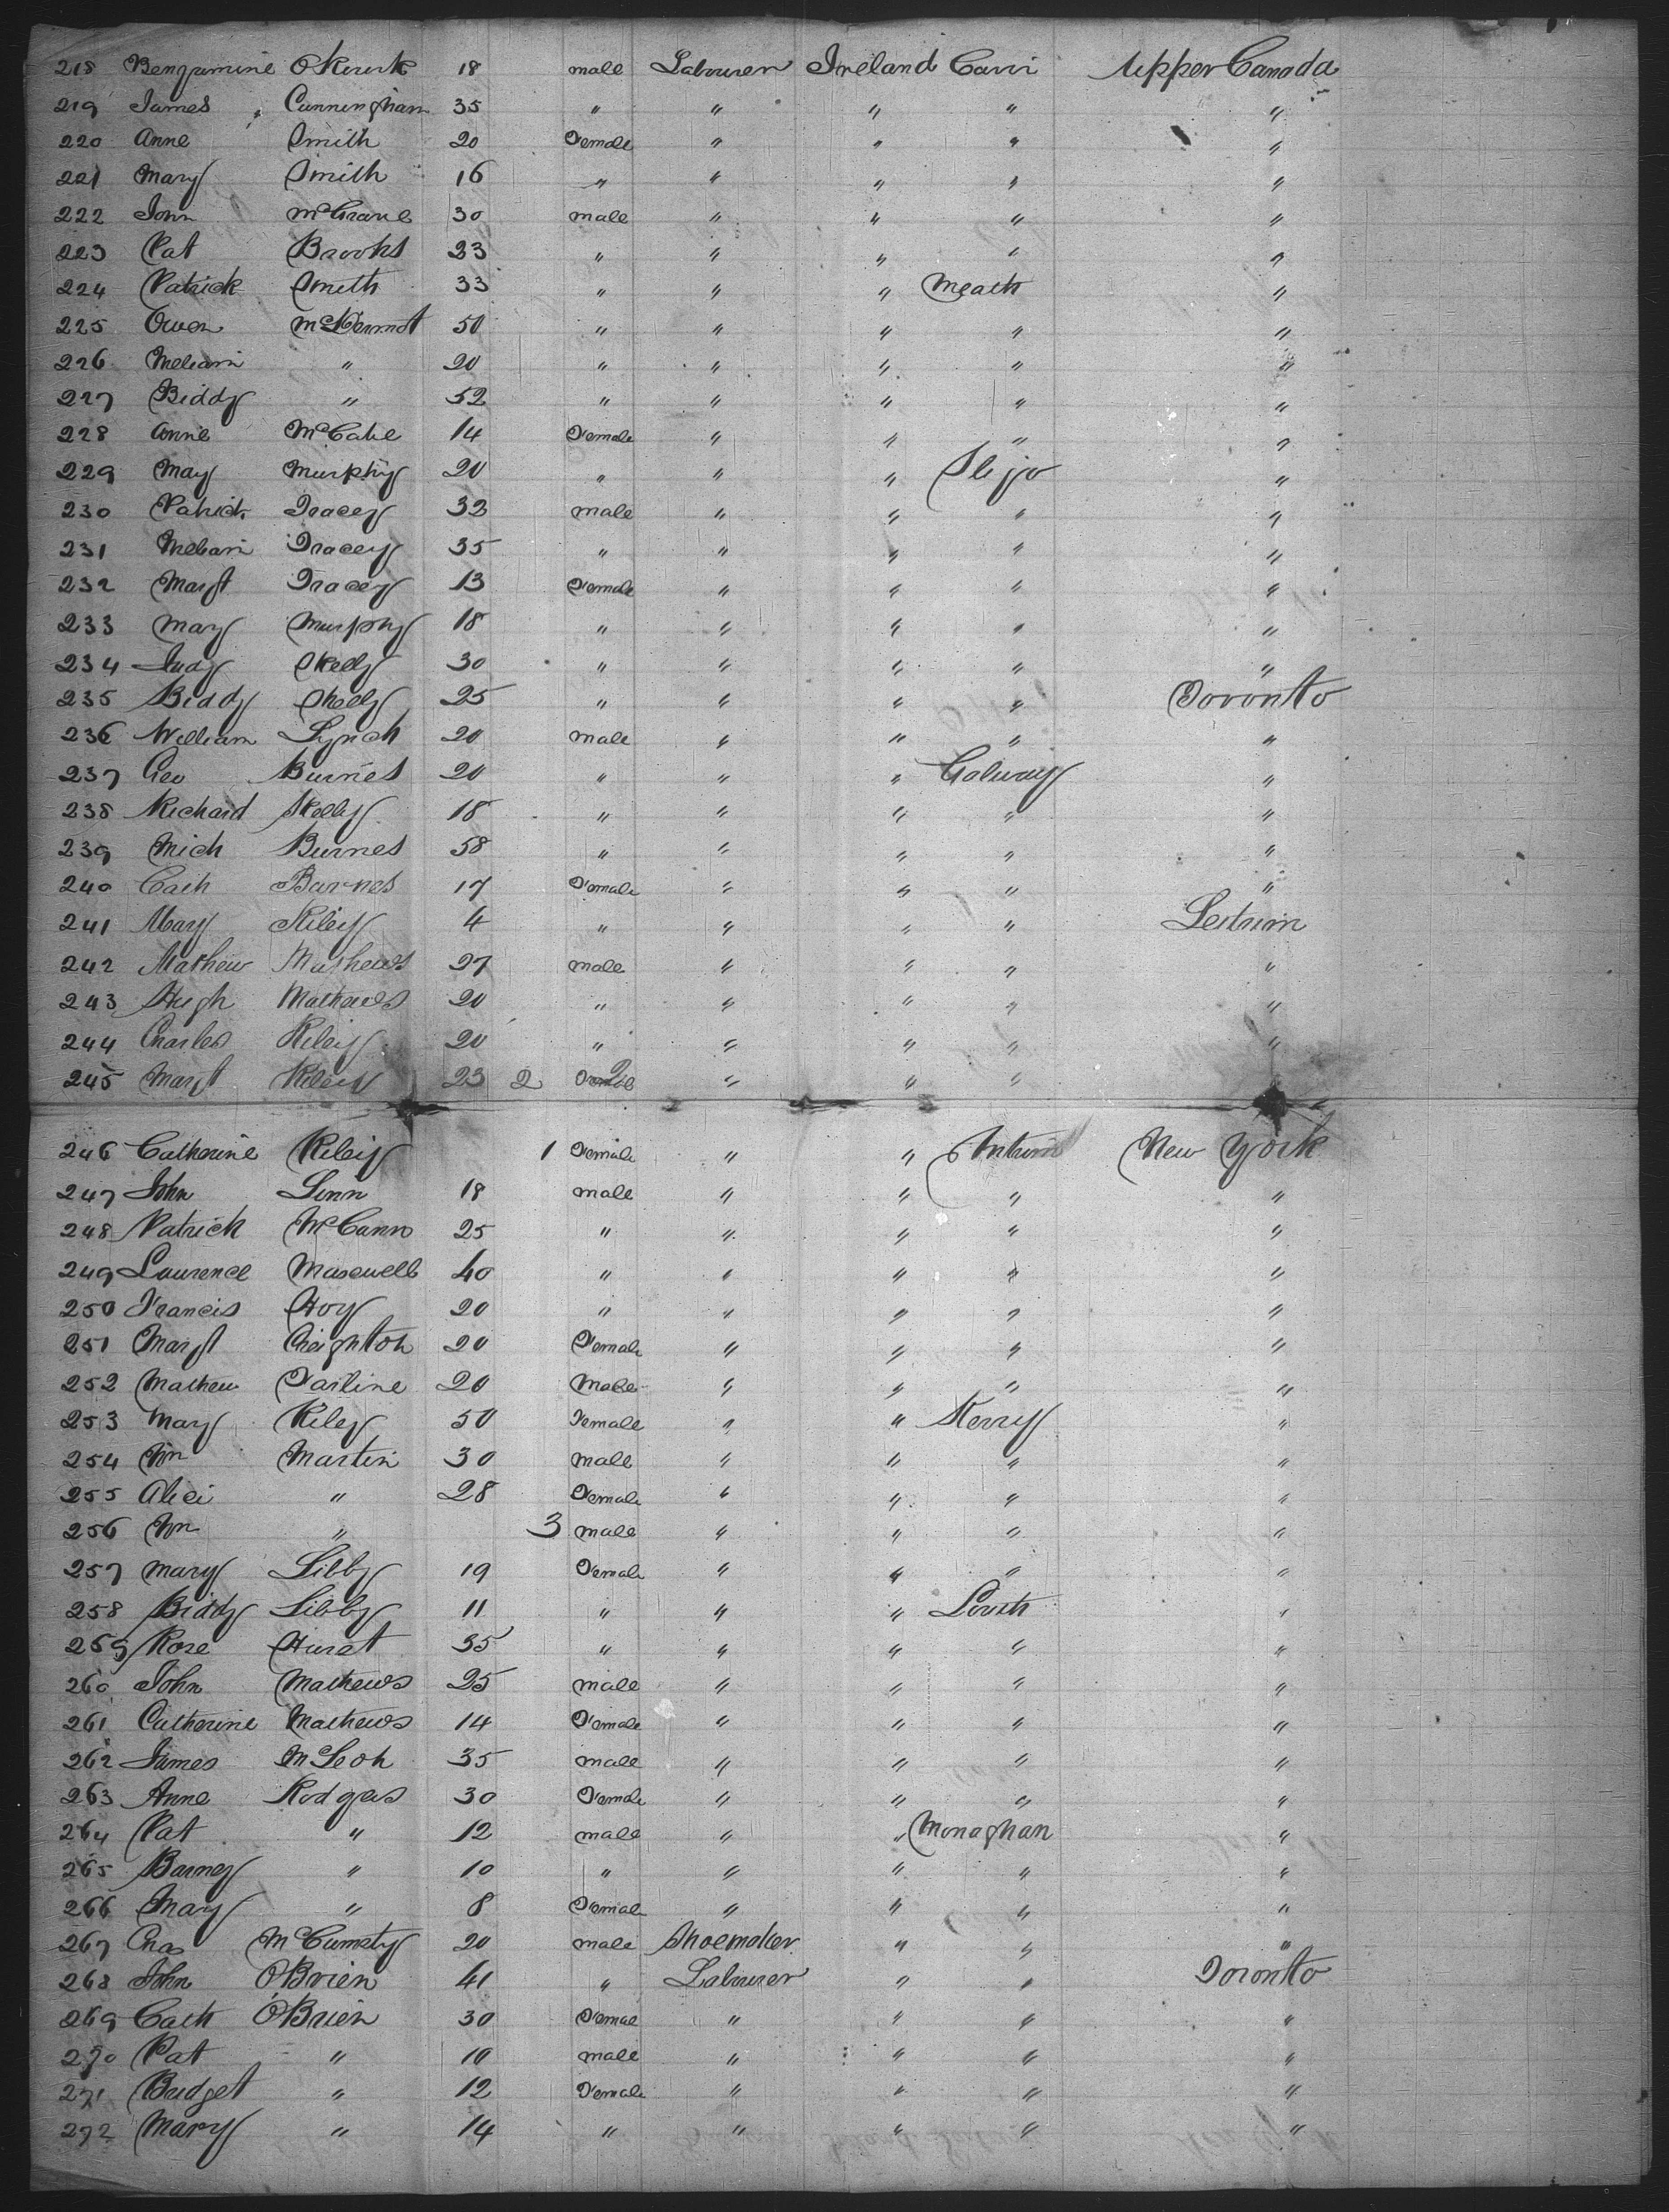 218 Bengamine OKeurk 18 male Labourer Ireland Cavi Upper Canada
219 James Cunningham 35 " " " " "
220 Anne Smith 20 Female " " " "
221 Mary Smith 16 " " " " "
222 John McGrane 30 male " " " "
223 Pat Brooks 23 " " " " "
224 Patrick Smith 33 " " " Meath "
225 Owen McDermot 50 " " " " "
226 William " 20 " " " " "
227 Biddy " 52 " " " " "
228 Anne McCabe 14 Female " " " "
229 May Murphy 20 " " " Sligo "
230 Patrick Tracey 32 male " " " "
231 William Tracey 35 " " " " "
232 Margt Tracey 13 Female " " " "
233 Mary Murphy 18 " " " " "
234 Judy Skelly 30 " " " " "
235 Biddy Skelly 25 " " " " Toronto
236 William Lynch 20 male " " " "
237 Geo Burnes 20 " " " Galway "
238 Richard Skelly 18 " " " " "
239 Mich Burnes 58 " " " " "
240 Cath Barnes 17 Female " " " "
241 Mary Riley 4 " " " " Leitrim
242 Mathew Mathews 27 male " " " "
243 Hugh Mathews 20 " " " " "
244 Charles Riley 20 " " " " "
245 Margt Riley 23 2 " " "
246 Catherine Riley 1 Female " " Antrim New York
247 John Linn 18 male " " " "
248 Patrick McCann 25 " " " " "
249 Laurence Maxwell 40 " " " " "
250 Francis Hoy 20 " " " " "
251 Margt Creighton 20 Female " " " "
252 Mathew 20 Male " " " "
253 Mary Riley 50 Female " " Kerry "
254 Wm Martin 30 male " " " "
255 Alici " 28 Female " " " "
256 Wm " 3 male " " " "
257 Mary Libby 19 Female " " " "
258 Biddy Libby 11 " " " Louth "
259 Rose Hurst 35 " " " " "
260 John Mathews 25 male " " " "
261 Catherine Mathews 14 Female " " " "
262 James 35 male " " " "
263 Anne Rodgers 30 Female " " " "
264 Pat " 12 male " " Monaghan "
265 Barney " 10 " " " " "
266 Mary " 8 Female " " " "
267 Chas 20 male Shoemaker " " "
268 John O'Brien 41 " Labourer " " Toronto
269 Cath O'Brien 30 Female " " " "
270 Pat " 10 male " " " "
271 Bridget " 12 Female " " " "
272 Mary " 14 " " " " "